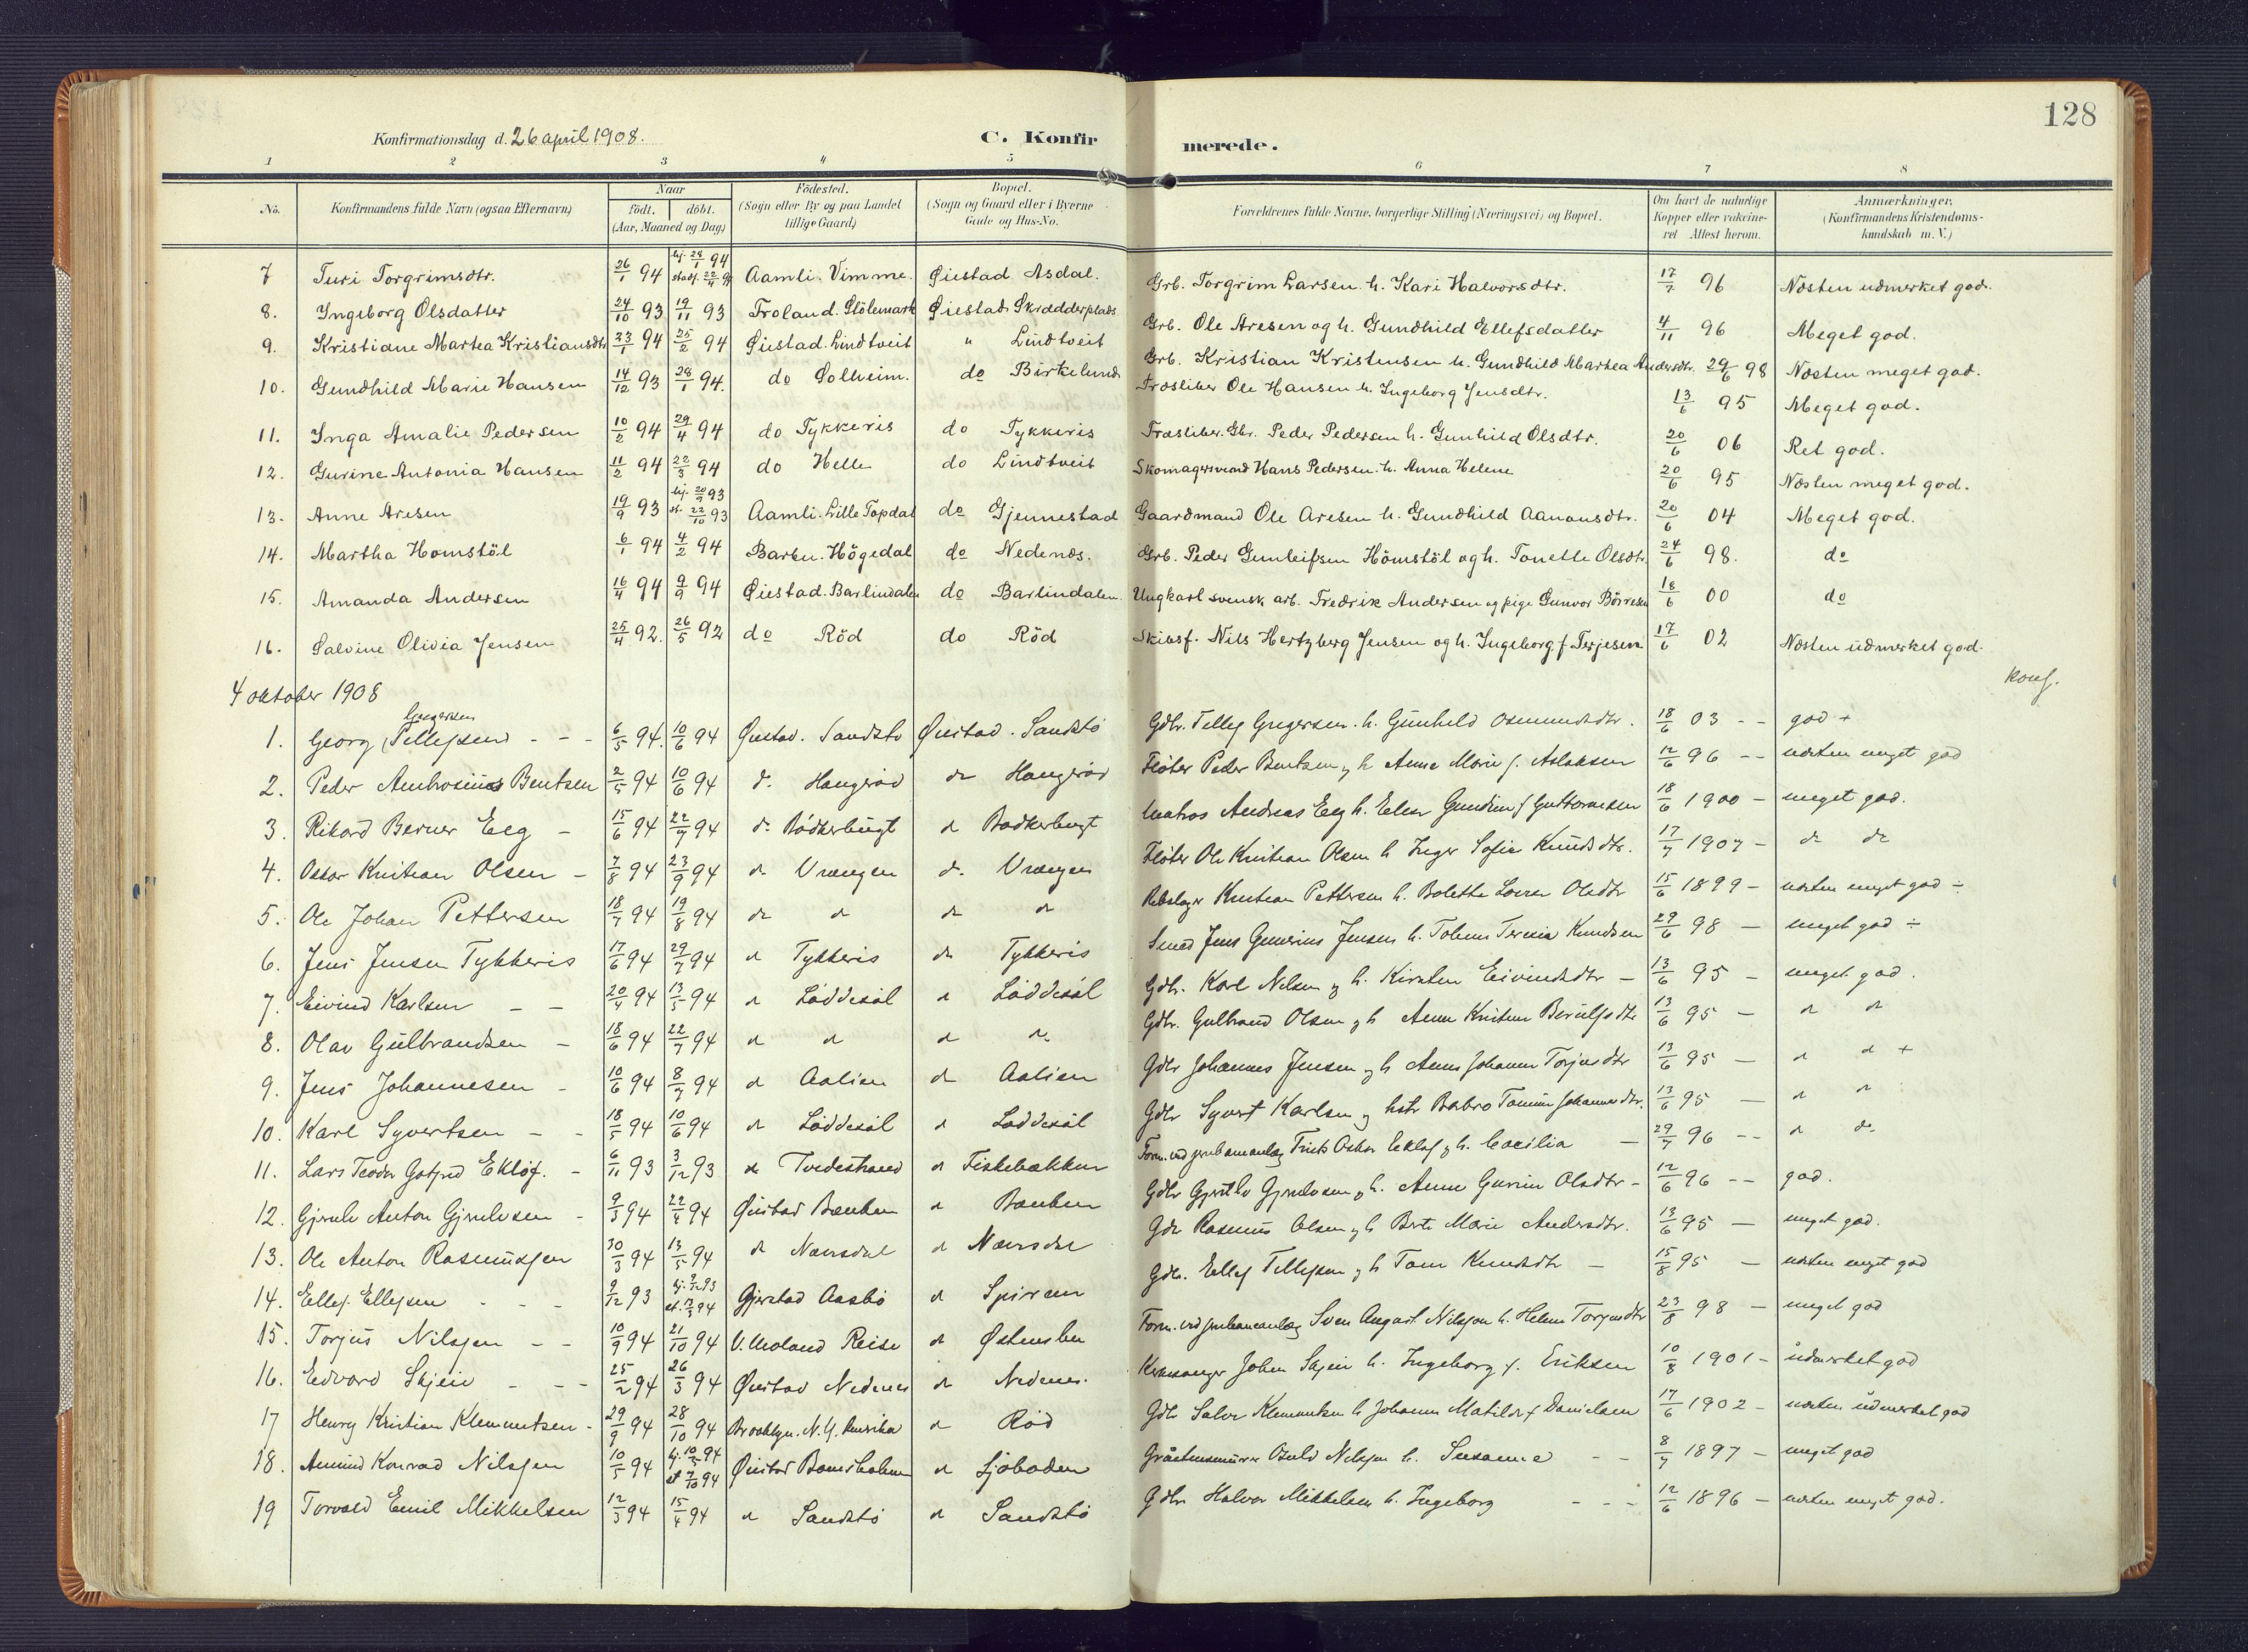 128
Konfirmationsdag d. 26 april 1908. C. Konfirmerede.
1 2 3 4 5 6 7 8
No. Konfirmandens fulde Navn (ogsaa Efternavn) Naar født. døbt. (Aar, Maaned og Dag) Födested. (Sogn eller By og paa Landet tillige Gaard) Bopæl. (Sogn og Gaard eller i Byerne Gade og Hus-No. Forældrenes fulde Navne, borgerlige Stilling (Næringsvei) og Bopæl. Om havt de naturlige Kopper eller vakcineret Attest herom. Anmærkninger. (Konfirmandens Kristendomskundskab m. V.)
7 Turi Torgrimsdtr. 26/1 94 hj. 28/1 94 stadf. 22/4 94 Aamli. Vimme. Øiestad Asdal. Grb. Torgrim Larsen h. Kari Halvorsdtr. 17/7 96 Næsten udmerket god.
8. Ingeborg Olsdatter 24/10 93 19/11 93 Froland. Stölemark Øiestad Skrædderplads Grb. Ole Aresen og h. Gundhild Ellefsdatter 4/11 96 Meget god.
9. Kristiane Martea Kristiansdtr 23/1 94 25/2 94 Øiestad. Lindtveit " Lindtveit Grb. Kristian Kristensen h. Gundhild Martea Andersdtr. 29/6 98 Næsten meget god.
10. Gundhild Marie Hansen 14/12 93 28/1 94. do Solheim. do Birkelund Træsliber Ole Hansen h. Ingeborg Jensdtr. 13/6 95 Meget god.
11. Inga Amalie Pedersen 10/2 94 29/4 94 do Tykkeris do Tykkeris Træsliber. Gbr. Peder Pedersen h. Gunhild Olsdtr. 20/6 06 Ret god.
12. Gurine Antonia Hansen 11/2 94 22/3 94 do Helle do Lindtveit Skomagersvend Hans Pedersen. h. Anna Helene 20/6 95 Næsten meget god.
13. Anne Aresen 19/9 93 hj. 20/9 93 st. 22/10 93 Aamli. Lille Topdal do Gjennestad Gaardmand Ole Aresen h. Gundhild Aanonsdtr. 20/6 04 Meget god.
14. Martha Homstöl 6/1 94 4/2 94 Barbu. Högedal do Nedenæs. Grb. Peder Gunleifsen Hömstöl og h. Tonette Olsdtr. 24/6 98. do
15. Amanda Andersen 16/4 94 9/9 94 Øiestad. Barlindalen do Barlindalen. Ungkarl svensk arb. Fredrik Andersen og pige Gunvor Börresen 18/6 00 do
16. Salvine Olivia Jensen 25/4 92. 26/5 92 do Röd do Röd Skibsf. Nils Hertzberg Jensen og h. Ingeborg f Terjesen 17/6 02 Næsten udmerket god.
4 oktober 1908 konf.
1. Georg (Tellefsen) Gregersen 6/5 94. 10/6 94 Øiestad. Sandstö Øiestad. Sandstö Gdbr. Tellef Gregersen. h. Gunhild Osmundsdtr. 18/6 03 - - god +
2. Peder Ambrosius Bentsen 2/5 94 10/6 94 do Haugerød do Haugerød Fløter Peder Bentsen og h Anne Marie f. Aslaksen 12/6 96 -- næsten meget god
3. Rikard Berner Eeg - 15/6 94 22/7 94 do Bødkerbugt do Bødkerbugt Matros Andreas Eeg h. Elen Gundine f Guttormsen 18/6 1900 - meget god.
4. Oskar Kristian Olsen - 7/8 94 23/9 94 do Vrængen do Vrængen Fløter Ole Kristian Olsen h Inger Sofie Knudsdtr. 17/7 1907 - do do
5. Ole Johan Pettersen 18/7 94 19/8 94 do do do do Rebslager Kristian Pettersen h. Bolette Lovise Olsdtr 15/6 1899 - næsten meget god ÷
6. Jens Jensen Tykkeris 17/6 94 29/7 94 do Tykkeris do Tykkeris Smed Jens Gunerius Jensen h. Tolene Teresia Knudsen 29/6 98 - meget god ÷
7. Eivind Karlsen - - 20/4 94 13/5 94 do Løddesøl do Løddesøl Gdbr. Karl Nilsen og h. Kirsten Eivindsdtr - 13/6 95 - meget god.
8. Olav Gulbrandsen - 18/6 94 22/7 94 do do do do Gdbr. Gulbrand Olsen og h Anne Kristine Berulfsdtr 13/6 95 - do do
9. Jens Johannesen - 10/6 94 8/7 94 do Aalien do Aalien Gdbr Johannes Jensen og h Anne Johanne Torjusdtr 13/6 95 - do do +
10. Karl Syvertsen - - 18/5 94 10/6 94 do Løddesøl do Løddesøl Gdbr Syvert Karlsen og hstr Barbro Tomine Johannesdtr. 13/6 95 - do do
11. Lars Teodor Gotfred Ekløf. - 6/11 93 3/12 93 do Tvedestrand do Fiskebækken Form. ved jernbaneanlæg Frits Oskar Ekløf og h. Cæcilia - 29/7 96 -- do do
12. Gjerulv Anton Gjerulvsen - 9/3 94 22/4 94 Øiestad Bænken do Bænken Gdbr Gjerulv Gjerulvsen og h. Anne Gurine Olsdtr - 12/6 96 -- god.
13. Ole Anton Rasmussen 30/3 94 13/5 94 do Næversdal do Næversdal Gdbr Rasmus Olsen og h Berte Marie Andersdtr. 13/6 95 - meget god.
14. Ellef. Ellefsen - - - 9/12 93 hj. 9/12 93 st. 12/3 94 Gjerstad Aasbö do Spiren Gdbr. Ellef Tellefsen og h Tone Knudsdtr - 15/8 95 - næsten meget god
15. Torjus Nilssen - - 10/9 94 21/10 94 V. Moland Reise do Østensbu Form. ved jernbaneanlæg Sven August Nilsson h. Helene Torjusdtr 23/8 98 - meget god
16. Edvard Skjeie - - - 25/2 94 26/3 94 Øiestad Nedenes do Nedenes. Kirkesanger Johen Skjeie h. Ingeborg f. Eriksen 10/8 1901 - udmerket god
17 Henry Kristian Klemmetsen - 29/9 94 28/10 94 Brooklyn. N.Y. Amerika do Rød Gdbr Salve Klemmetsen h Johanne Matilde f Danielsen 17/6 1902 - næsten udmerket god
18. Amund Konrad Nilssen 10/5 94 hj. 10/5 94 st 7/10 94 Øiestad Bomsholmen do Sjøboden Gråstensmurer Osuld Nilssen h. Susanne - - 8/7 1897 - meget god
19 Torvald Emil Mikkelsen 12/3 94 15/4 94 do Sandstö do Sandstö Gdbr Halvor Mikkelsen h. Ingeborg - - - 12/6 1896 - næsten meget god.